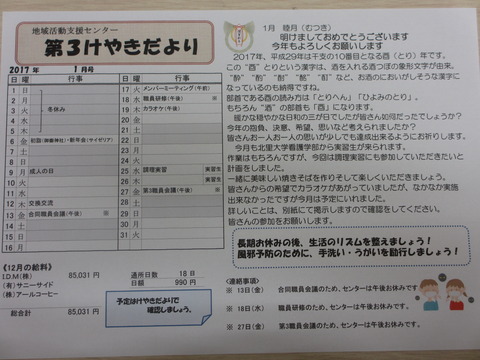 地域活動支援センター
第3けやきだより
2017 年 1月号
日 曜 行事
1 日
2 月
3 火 冬休み
4 水
5 木
6 金 初詣(御嶽神社)・新年会(サイゼリア)
7 土
8 日
9 月 成人の日
10 火
11 水
12 木 交換交流
13 金 合同職員会議(午後) ※
14 土
15 日
16 月
日 曜 行事
17 火 メンバーミーティング(午前)
18 水 職員研修(午後) ※
19 木 カラオケ(午後)
20 金
21 土
22 日
23 月
24 火
25 水 調理実習 実習生
26 木 実習生
27 金 第3職員会議(午後) ※
28 土
29 日
30 月
31 火
《12月の給料》
I.D.M(株) 85,031 円
(有)サニーサイド
(株)アールコーヒー
総合計 85,031 円
通所日数 18 日
日額 990 円
予定はけやきだよりで
確認しましょう。
1月 睦月(むつき)
明けましておめでとうございます
今年もよろしくお願いします
2017年、平成29年は干支の10番目となる酉(とり)年です。
この"酉"とりという漢字は、酒を入れる酒つぼの象形文字が由来。
など、お酒のにおいがしそうな漢字に
なっているのも納得ですね。
部首である酉の読み方は「とりへん」「ひよみのとり」。
もちろん"酒"の部首も「酉」になります。
暖かな穏やかな日和の三が日でしたが皆さん如何だったでしょうか?
今年の抱負、決意、希望、思いなど考えられましたか?
皆さんお一人お一人の思いが少しでも達成出来るようにお祈りします。
今月も北里大学看護学部から実習生が来られます。
作業はもちろんですが、今回は調理実習にも参加していただきたいと
計画をしました。
一緒に美味しい焼きそばを作りそして楽しくいただきましょう。
皆さんからの希望でカラオケがあがっていましたが、なかなか実施
出来なかったですが今月は予定にいれました。
詳しいことは、別紙にて掲示しますので確認をしてください。
皆さんの参加をお願いします。
長期お休みの後、生活のリズムを整えましょう!
風邪予防のために、手洗い・うがいを励行しましょう!
<連絡事項>
※ 13日(金) 合同職員会議のため、センターは午後お休みです
※ 18日(水) 職員研修のため、センターは午後お休みです
※ 27日(金) 第3職員会議のため、センターは午後お休みです。